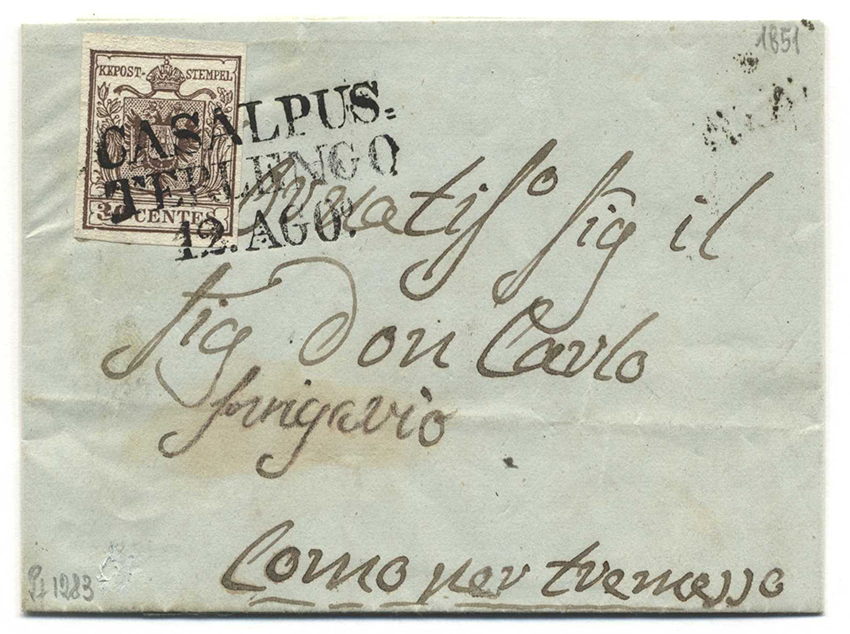 1851
KKPOST-STEMPEL
30 CENTES
CASALPUS.
TERLENGO
12. AGO.
sig il
sig Don Carlo
Como per tremesso
1283